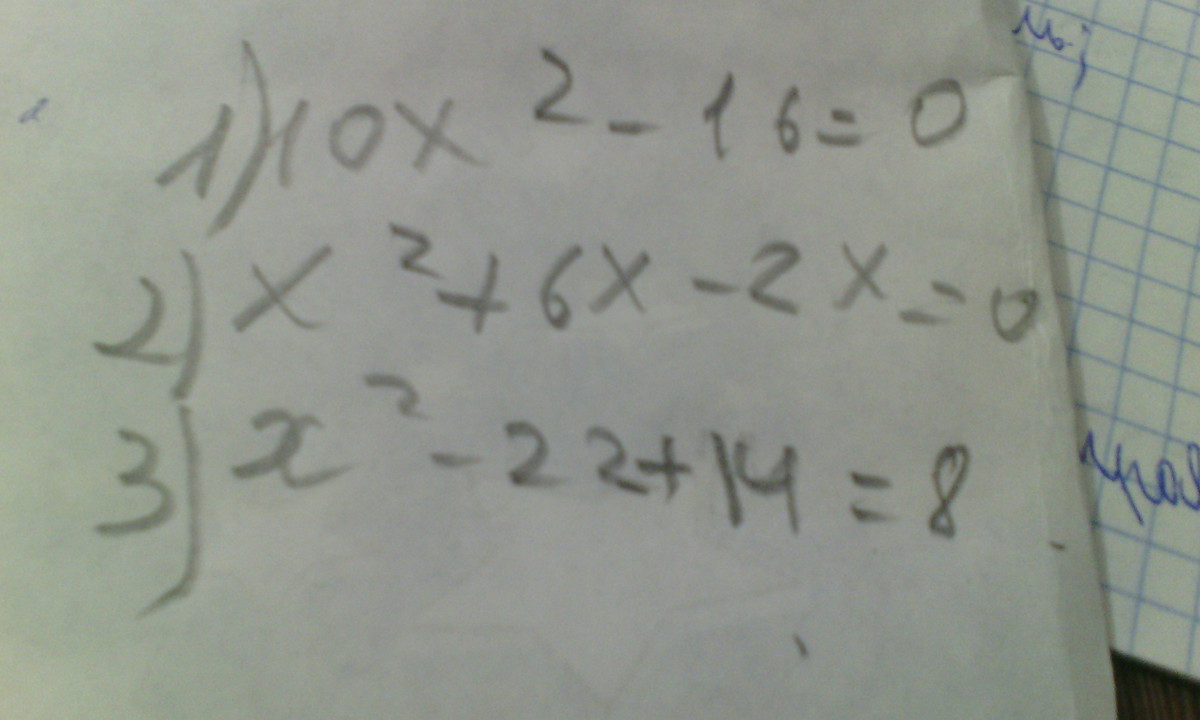 1) 10x² - 16 = 0
2) x² + 6x - 2x = 0
3) x² - 22 + 14 = 8